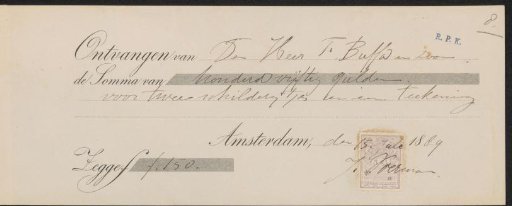 8.
R.P.K.
Ontvangen van Den Heer Fs Buffa en zoon
de Somma van honderd vijftig gulden
voor twee schilderijtjes en een teekening
Amsterdam, den 15 Juli 1889
Zegge f 150.
J. Voerman